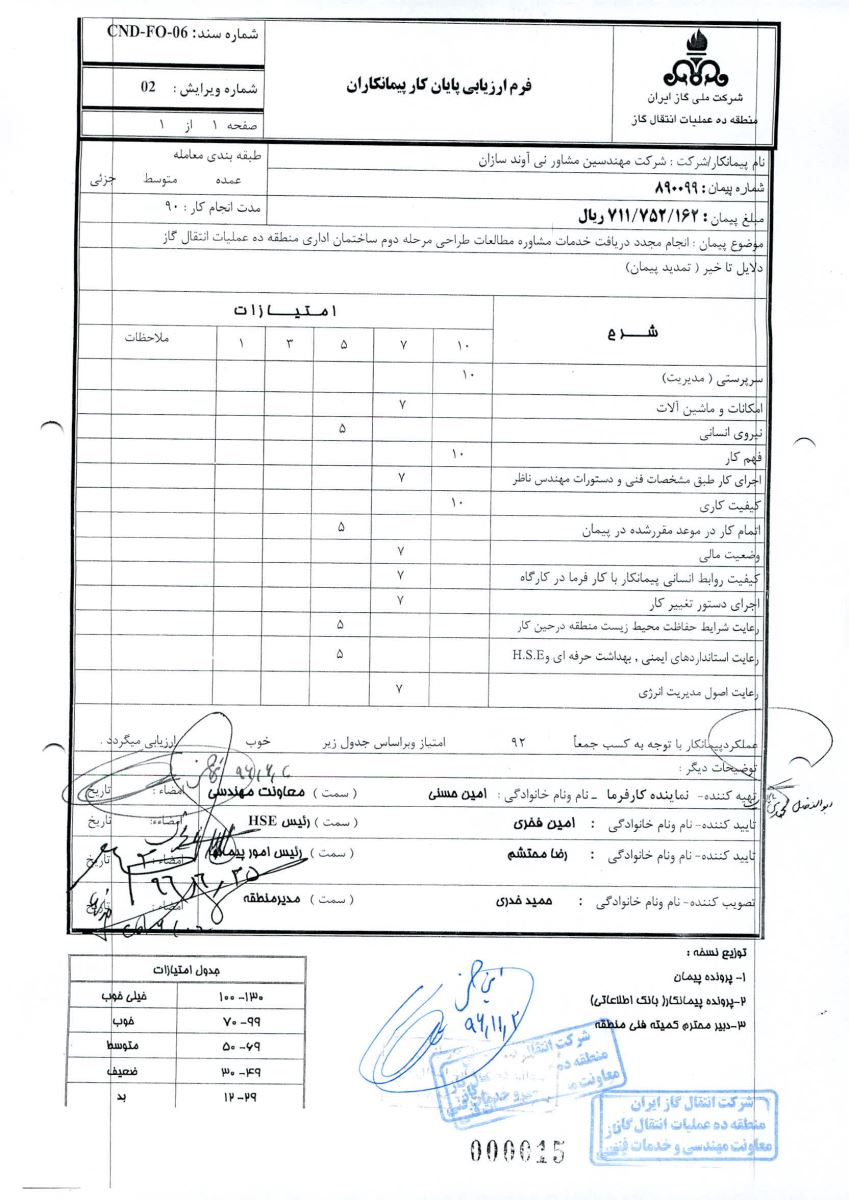 شماره سند: CND-FO-06
شماره ویرایش: 02
صفحه ۱ از ۱
فرم ارزیابی پایان کار پیمانکاران
شرکت ملی گاز ایران
منطقه ده عملیات انتقال گاز
نام پیمانکار/شرکت : شرکت مهندسین مشاور نی آوند سازان
طبقه بندی معامله
عمده متوسط جزئی
شماره پیمان: ۸۹۰۰۹۹
مبلغ پیمان: ۷۱۱/۷۵۲/۱۶۲ ریال
مدت انجام کار : ۹۰
موضوع پیمان : انجام مجدد دریافت خدمات مشاوره مطالعات طراحی مرحله دوم ساختمان اداری منطقه ده عملیات انتقال گاز
دلایل تا خیر ( تمدید پیمان)
شـــرح امتیــازات
۱۰ ۷ ۵ ۳ ۱ ملاحظات
سرپرستی ( مدیریت) ۱۰
امکانات و ماشین آلات ۷
نیروی انسانی ۵
فهم کار ۱۰
اجرای کار طبق مشخصات فنی و دستورات مهندس ناظر ۷
کیفیت کاری ۱۰
اتمام کار در موعد مقررشده در پیمان ۵
وضعیت مالی ۷
کیفیت روابط انسانی پیمانکار با کار فرما در کارگاه ۷
اجرای دستور تغییر کار ۷
رعایت شرایط حفاظت محیط زیست منطقه درحین کار ۵
رعایت استانداردهای ایمنی , بهداشت حرفه ای وH.S.E ۵
رعایت اصول مدیریت انرژی ۷
عملکردپیمانکار با توجه به کسب جمعاً ۹۲ امتیاز وبراساس جدول زیر خوب ارزیابی میگردد .
توضیحات دیگر :
تهیه کننده- نماینده کارفرما - نام ونام خانوادگی : امین حسنی ( سمت ) معاونت مهندسی امضاء : تاریخ
تایید کننده- نام ونام خانوادگی : امین فخری ( سمت ) رئیس HSE امضاء: تاریخ
تایید کننده- نام ونام خانوادگی : رضا محتشم ( سمت ) رئیس امور پیمانها امضاء : تاریخ
تصویب کننده- نام ونام خانوادگی : حمید خدری ( سمت ) مدیرمنطقه امضاء : تاریخ
توزیع نسخه :
۱- پرونده پیمان
۲-پرونده پیمانکار( بانک اطلاعاتی)
۳-دبیر محترم کمیته فنی منطقه
جدول امتیازات
۱۰۰-۱۳۰ خیلی خوب
۷۰-۹۹ خوب
۵۰-۶۹ متوسط
۳۰-۴۹ ضعیف
۱۲-۲۹ بد
۹۶,۱۱,۲
شرکت انتقال گاز ایران
منطقه ده عملیات انتقال گاز
معاونت مهندسی و خدمات فنی
000015